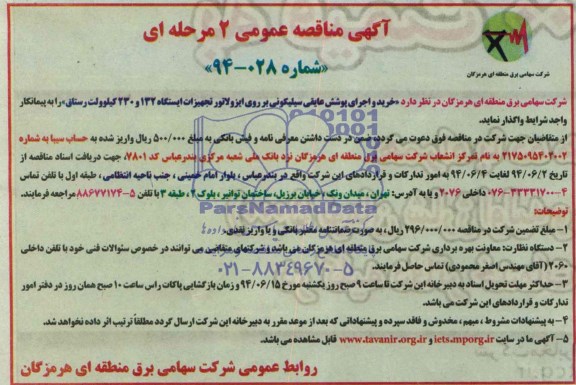 آگهی مناقصه عمومی ۲ مرحله ای
«شماره ۰۲۸-۹۴»
شرکت سهامی برق منطقه ای هرمزگان
شرکت سهامی برق منطقه ای هرمزگان در نظر دارد «خرید و اجرای پوشش عایقی سیلیکونی بر روی ایزولاتور تجهیزات ایستگاه ۱۳۲ و ۲۳۰ کیلوولت رستاق» را به پیمانکار
واجد شرایط واگذار نماید.
از متقاضیان جهت شرکت در مناقصه فوق دعوت می گردد ضمن در دست داشتن معرفی نامه و فیش بانکی به مبلغ ۵۰۰/۰۰۰ ریال واریز شده به حساب سیبا به شماره
۲۱۷۵۰۹۵۴۰۲۰۰۲ به نام تمرکز انشعاب شرکت سهامی برق منطقه ای هرمزگان نزد بانک ملی شعبه مرکزی بندرعباس کد ۷۸۰۱، جهت دریافت اسناد مناقصه از
تاریخ ۹۴/۰۶/۲ لغایت ۹۴/۰۶/۴ به امور تدارکات و قراردادهای این شرکت واقع در بندرعباس، بلوار امام خمینی، جنب ناحیه انتظامی، طبقه اول با تلفن تماس
۰۷۶-۳۳۳۳۱۷۰۰-۴ داخلی ۲۰۷۶ و یا به آدرس: تهران، میدان ونک، خیابان برزیل، ساختمان توانیر، بلوک ۲، طبقه ۳ با تلفن ۵-۸۸۶۷۷۱۷۴ مراجعه فرمایند.
توضیحات:
۱- مبلغ تضمین شرکت در مناقصه ۲۹۶/۰۰۰/۰۰۰ ریال، به صورت ضمانتنامه معتبر بانکی و یا واریز نقدی
۲- دستگاه نظارت: معاونت بهره برداری شرکت سهامی برق منطقه ای هرمزگان می باشد و شرکتهای متقاضی می توانند در خصوص سئوالات فنی خود با تلفن داخلی
۲۰۶۰ (آقای مهندس اصغر محمودی) تماس حاصل فرمایند.
۳- حداکثر مهلت تحویل اسناد به دبیرخانه این شرکت تا ساعت ۹ صبح روز یکشنبه مورخ ۹۴/۰۶/۱۵ و زمان بازگشایی پاکات راس ساعت ۱۰ صبح همان روز در دفتر امور
تدارکات و قراردادهای این شرکت می باشد.
۴- به پیشنهادات مشروط، مبهم، مخدوش و فاقد سپرده و پیشنهاداتی که بعد از موعد مقرر به دبیرخانه این شرکت ارسال گردد مطلقاً ترتیب اثر داده نخواهد شد.
۵- آگهی ما در سایت iets.mporg.ir و www.tavanir.org.ir قابل مشاهده می باشد.
روابط عمومی شرکت سهامی برق منطقه ای هرمزگان
ParsNamadData
۰۲۱-۸۸۳۴۹۶۷۰-۵